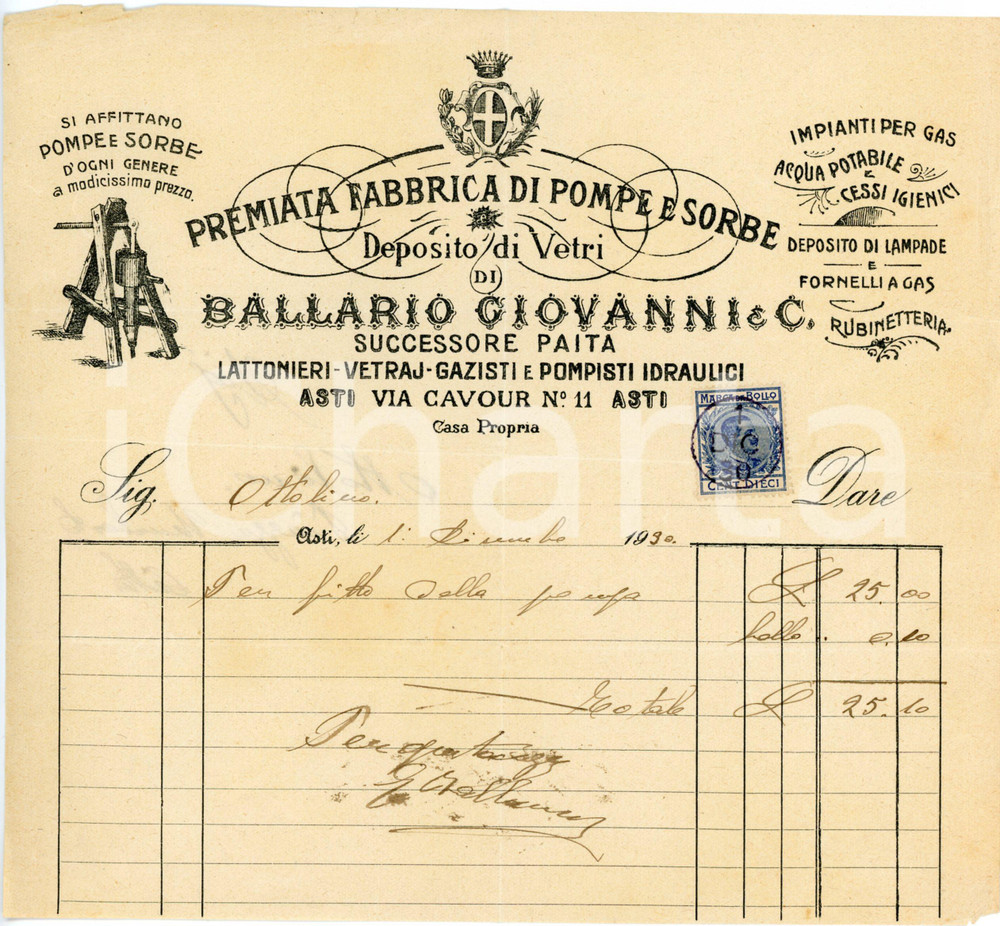 SI AFFITTANO
POMPE E SORBE
D'OGNI GENERE
a modicissimo prezzo.
PREMIATA FABBRICA DI POMPE E SORBE
Deposito di Vetri
DI
BALLARIO GIOVANNI & C.
SUCCESSORE PAITA
LATTONIERI-VETRAJ-GAZISTI E POMPISTI IDRAULICI
ASTI VIA CAVOUR Nº 11 ASTI
Casa Propria
IMPIANTI PER GAS
ACQUA POTABILE
E
CESSI IGIENICI
DEPOSITO DI LAMPADE
E
FORNELLI A GAS
RUBINETTERIA.
MARCA DA BOLLO
CENT DIECI
iCharta
Sig. Ottolino. Dare
Asti, li 1: Dicembre 1930.
Per fitto della pompa £ 25.00
bollo .. 0.10
Totale £ 25.10
Per quitanza